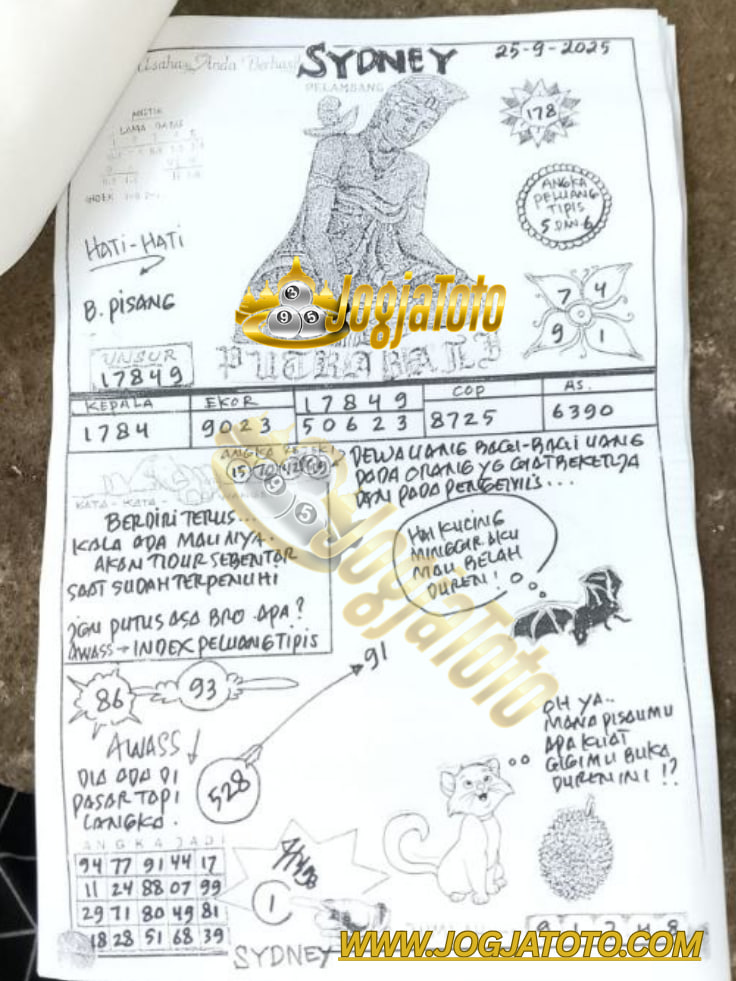 Usaha Anda Berhasil
SYDNEY
25-9-2025
PELAMBANG
178
ANGKA
PELUANG
TIPIS
5 DAN 6
HATI-HATI
B. PISANG
7 4
9 1
JogjaToto
PUTRA BALI
UNSUR
17849
KEPALA
EKOR
17849
COP
AS.
1784
9023
50623
8725
6390
15 70 42
DEWA UANG BAGI-BAGI UANG
PADA ORANG YG GIAT BEKERJA
DAN PADA PENGEMIS...
KATA - KATA -
BERDIRI TERUS...
KALA ADA MAUNYA.
AKAN TIDUR SEBENTAR
SAAT SUDAH TERPENUHI
JGN PUTUS ASA BRO. APA?
AWASS → INDEX PELUANG TIPIS
HAI KUCING
MINGGIR. AKU
MAU BELAH
DUREN!
JogjaToto
91
86
93
AWASS ↓
DIA ADA DI
PASAR TAPI
LANGKA.
528
OH YA..
MANA PISAUMU
APA KUAT
GIGIMU BUKA
DUREN INI!?
ANGKA JADI
94 77 91 44 17
11 24 88 07 99
29 71 80 49 81
18 28 51 68 39
1
SYDNEY
WWW.JOGJATOTO.COM